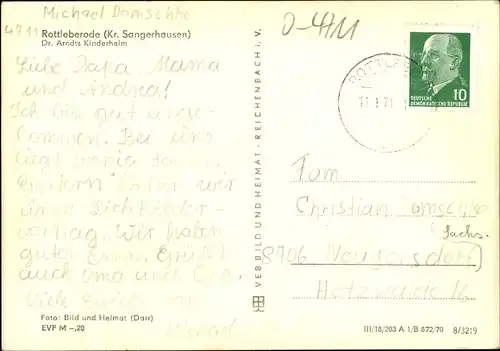 Michael Damschke
4711
D-4711
Rottleberode (Kr. Sangerhausen)
Dr. Arndts Kinderheim
Liebe Papa, Mama
und Andrea!
Ich bin gut ange-
kommen. Bei uns
liegt wenig
Gestern haben wir
einen Lichtbilder-
vortrag. Wir haben
gutes Essen. Grüßt
auch Oma und Opa.
Viele Grüße von
Michael
Foto: Bild und Heimat (Darr)
EVP M –,20
VEB BILD UND HEIMAT · REICHENBACH I. V.
ROTTLEBERODE
10
DEUTSCHE
DEMOKRATISCHE REPUBLIK
Fam
Christian Damschke
Sachs.
8706 Neugersdorf
III/18/203 A 1/B 872/70 8/3219